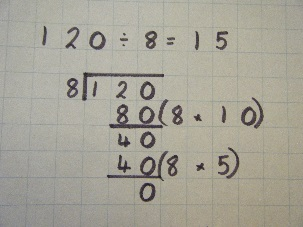 120 ÷ 8 = 15
8 120
80 (8 × 10)
40
40 (8 × 5)
0